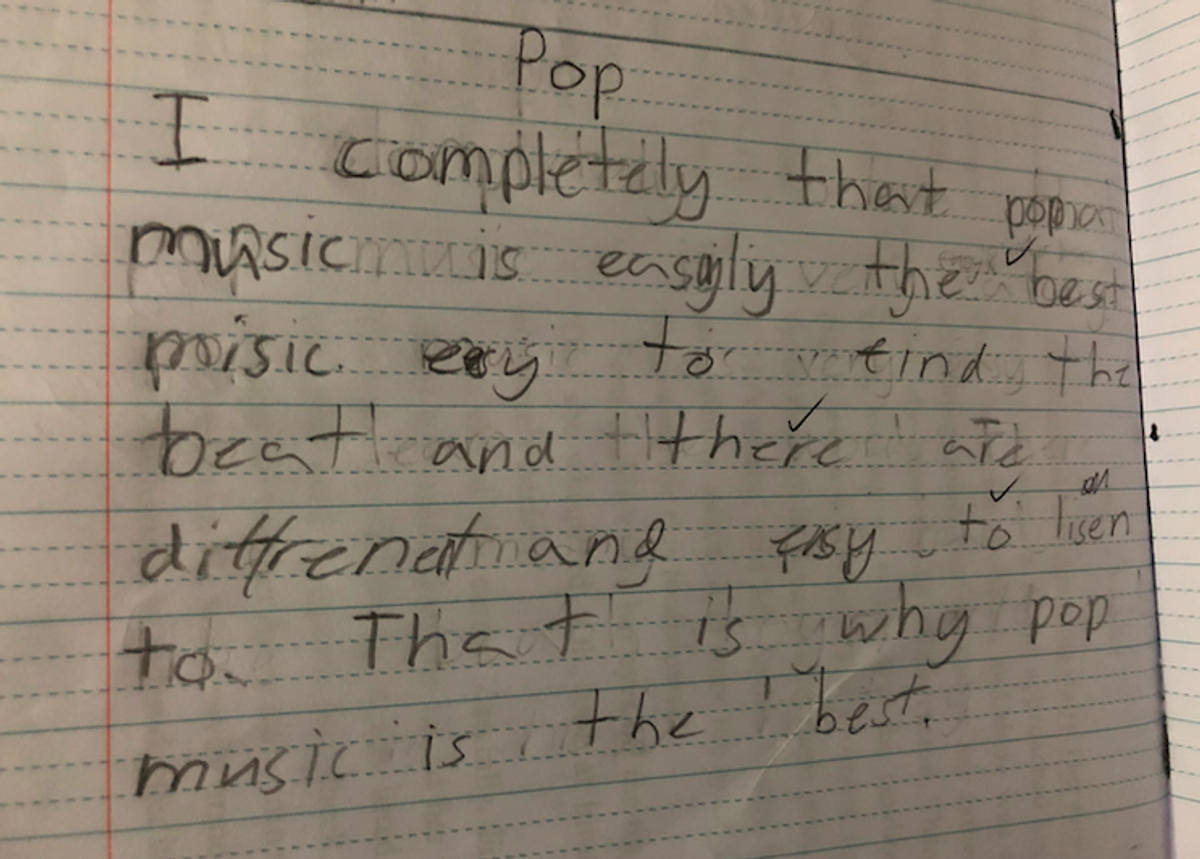 Pop
I completely that pop
music is easily the best
music. easy to find the
beat and there are
diffrent and easy to lisen
to. That is why pop
music is the best.